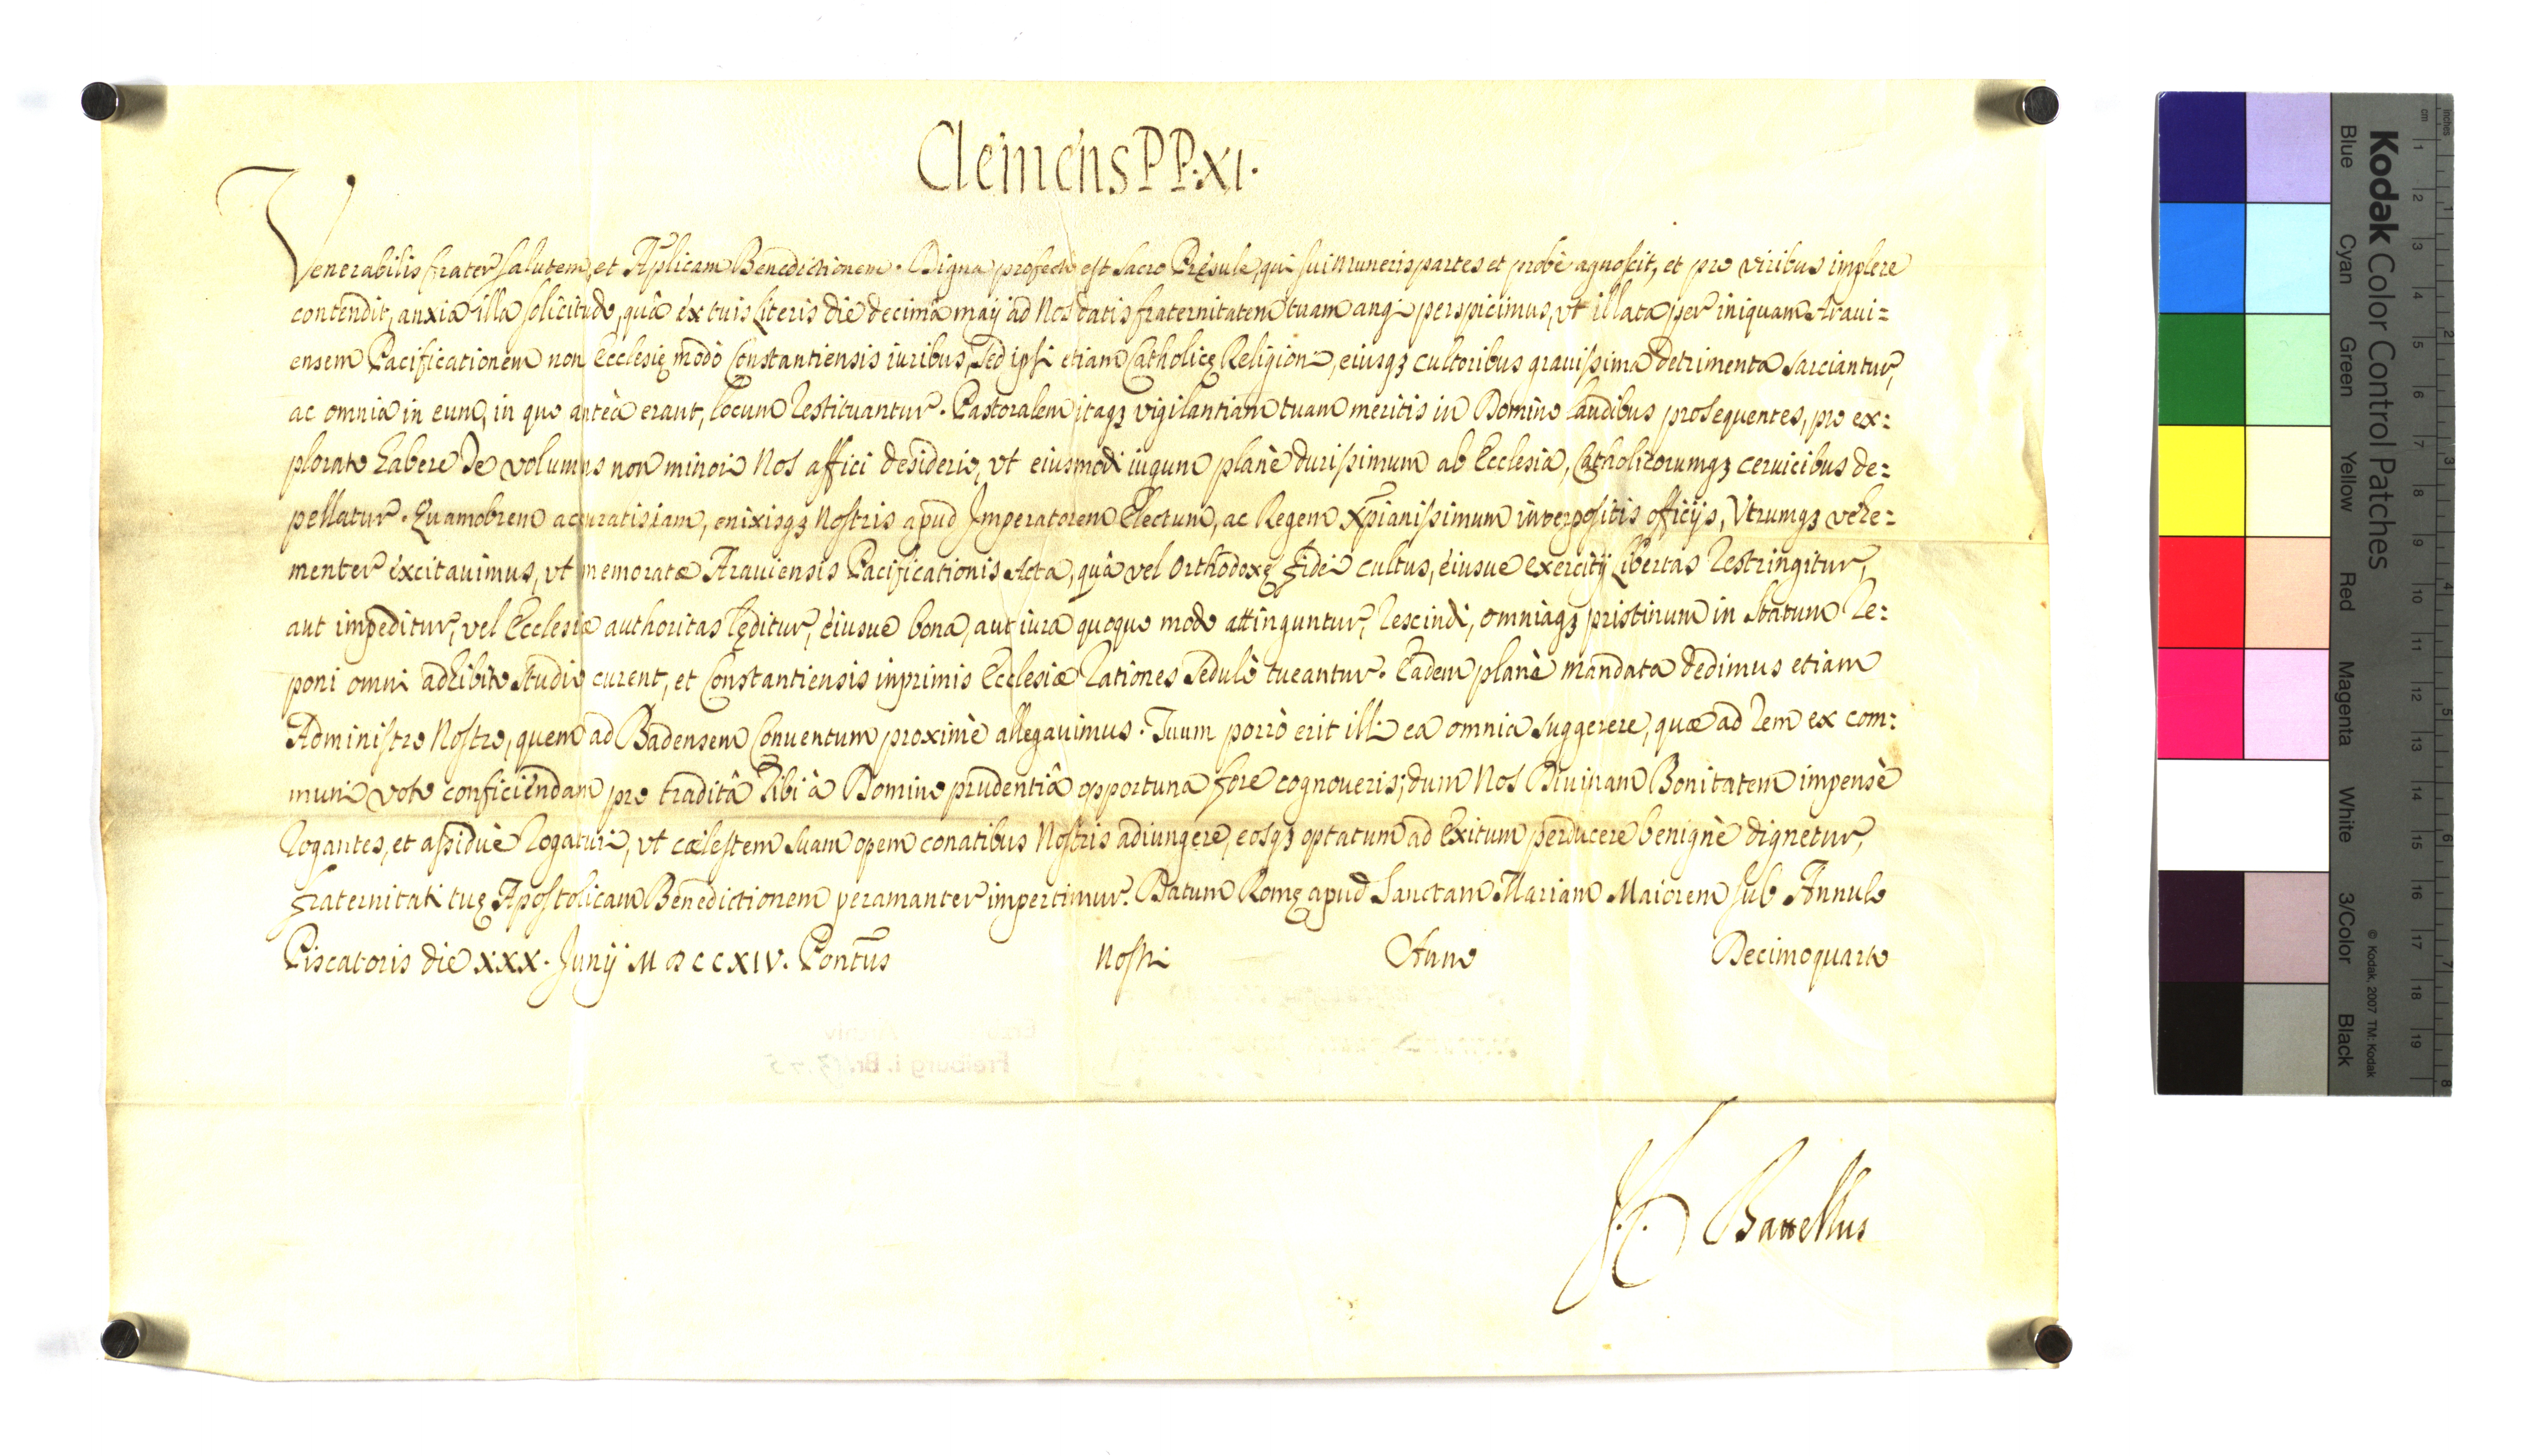 Clemens PP. XI.
Venerabilis frater salutem, et Aplicam Benedictionem. Digna profecto est Sacro Presule, qui sui Muneris partes et probè agnoscit, et pro viribus implere
contendit, anxia illa solicitudo, quâ ex tuis Literis die decima maij ad Nos datis fraternitatem tuam angi perspicimus, vt illata per iniquam Araui=
ensem Pacificationem non Ecclesię modò Constantiensis iuribus, Sed ipsi etiam Catholicę Religioni, eiusqꝫ cultoribus grauissima detrimenta sarciantur,
ac omnia in eum, in quo anteà erant, locum restituantur. Pastoralem itaqꝫ vigilantiam tuam meritis in Domino laudibus prosequentes, pro ex=
plorato habere Te volumus non minori Nos affici desiderio, vt eiusmodi iugum planè durissimum ab Ecclesia, Catholicorumqꝫ ceruicibus de=
pellatur. Quamobrem accuratis iam, enixisqꝫ Nostris apud Imperatorem Electum, ac Regem Xpianissimum interpositis officijs, Vtrumqꝫ vehe=
menter excitauimus, vt memoratæ Arauiensis Pacificationis Acta, quâ vel Orthodoxę fidei cultus, eiusue exercitij Libertas restringitur,
aut impeditur, vel Ecclesiæ authoritas lęditur, eiusue bona, aut iura quoquo modo attinguntur, rescindi, omniaqꝫ pristinum in Statum re=
poni omni adhibito Studio curent, et Constantiensis inprimis Ecclesiæ rationes Sedulò tueantur. Eadem planè mandata dedimus etiam
Administro Nostro, quem ad Badensem Conuentum proximè allegauimus. Tuum porrò erit illi ea omnia suggerere, quæ ad rem ex com=
muni voto conficiendam pro traditâ Tibi à Domino prudentiâ opportuna fore cognoueris; dum Nos Diuinam Bonitatem impensè
rogantes, et assiduè rogaturi, vt cælestem Suam opem conatibus Nostris adiungere, eosqꝫ optatum ad Exitum perducere benignè dignetur,
fraternitati tuę Apostolicam Benedictionem peramanter impertimur. Datum Romę apud Sanctam Mariam Maiorem sub Annulo
Piscatoris die XXX. Junij MDCCXIV. Pontus Nostri Anno Decimoquarto
Kodak Color Control Patches
Blue Cyan Green Yellow Red Magenta White 3/Color Black
© Kodak, 2007 TM: Kodak
inches
cm
1 2 3 4 5 6 7 8 9 10 11 12 13 14 15 16 17 18 19
1 2 3 4 5 6 7 8